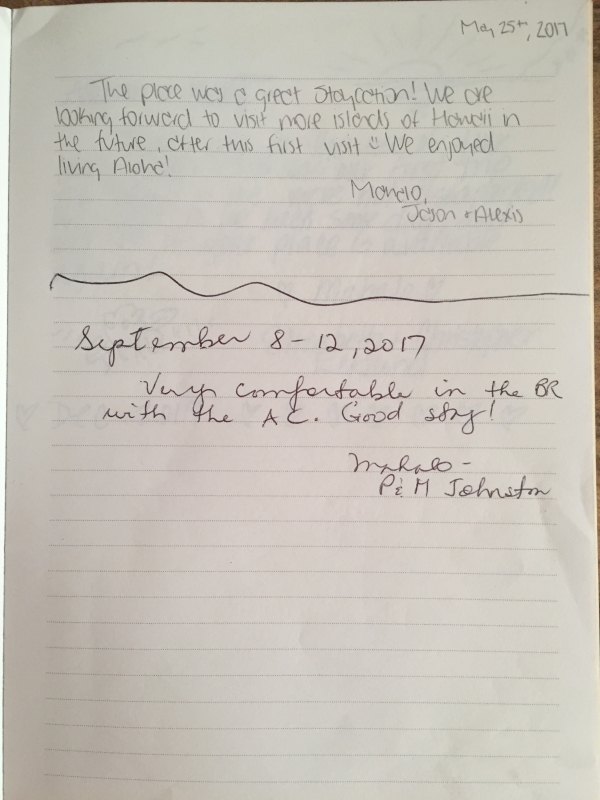 May 25th, 2017
The place was a great staycation! We are
looking forward to visit more islands of Hawaii in
the future, after this first visit We enjoyed
living Aloha!
Mahalo,
Jason + Alexis
September 8-12, 2017
Very comfortable in the BR
with the AC. Good stay!
Mahalo -
P & M Johnston